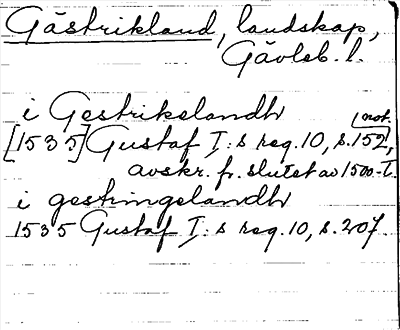 Gästrikland, landskap,
Gävleb. l.
i Gestrikelandh
not.
[1535] Gustaf I:s reg. 10, s. 152,
avskr. fr. slutet av 1500-t.
i gestringelandh
1535 Gustaf I:s reg. 10, s. 207.